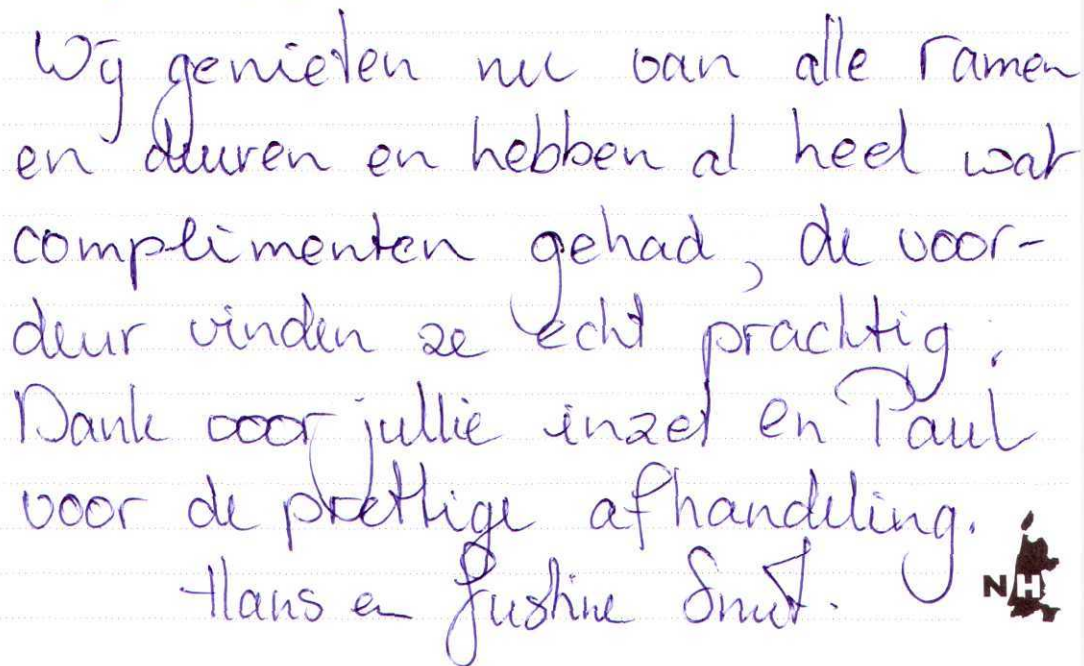 Wij genieten nu van alle ramen
en deuren en hebben al heel wat
complimenten gehad, de voor-
deur vinden ze echt prachtig.
Dank voor jullie inzet en Paul
voor de prettige afhandeling.
Hans en Justine Smit.
NH